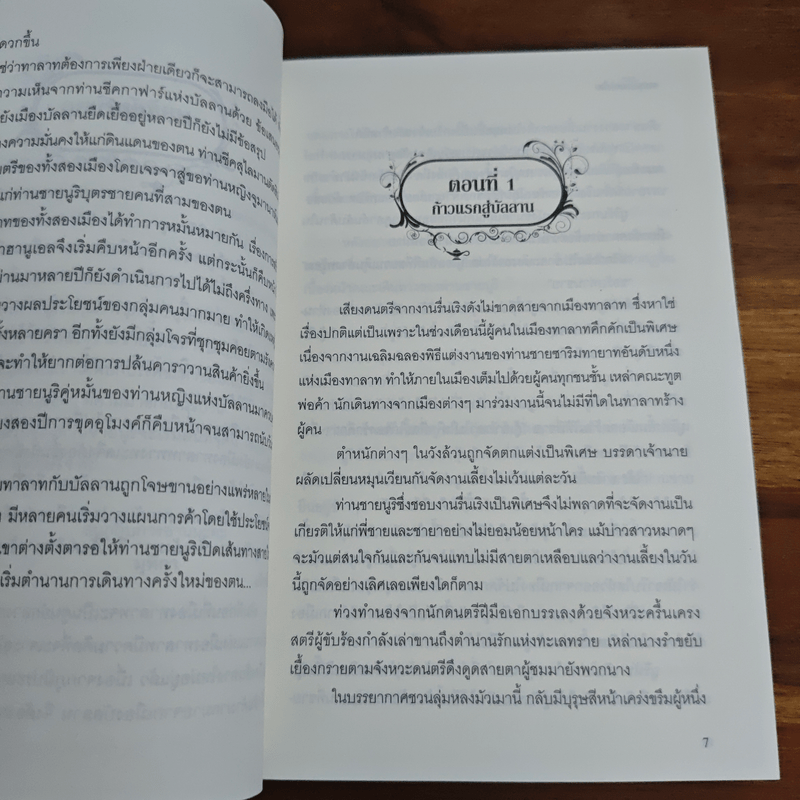 ดวกขึ้น
ช่ว่าทาลาทต้องการเพียงฝ่ายเดียวก็จะสามารถลงมือได้
วามเห็นจากท่านชีคกาฟาร์แห่งบัลลานด้วย
ยังเมืองบัลลานยืดเยื้ออยู่หลายปีก็ยังไม่มีข้อสรุป
งความมั่นคงให้แก่ดินแดนของตน ท่านชีคสุไลมาน
มตรีของทั้งสองเมืองโดยเจรจาสู่ขอท่านหญิง
แก่ท่านชายนูริบุตรชายคนที่สามของตน
าทของทั้งสองเมืองได้ทำการหมั้นหมายกัน
าฮานูเอลจึงเริ่มคืบหน้าอีกครั้ง แต่กระนั้นก็
่านมาหลายปีก็ยังดำเนินการไปได้ไม่ถึงครึ่งทาง
วางผลประโยชน์ของกลุ่มคนมากมาย ทำให้
ั้งหลายครา อีกทั้งยังมีกลุ่มโจรที่ชุกชุมคอย
จะทำให้ยากต่อการปล้นคาราวานสินค้ายิ่งขึ้น
านชายนูริคู่หมั้นของท่านหญิงแห่งบัลลานมา
ยงสองปีการขุดอุโมงค์ก็คืบหน้าจนสามารถ
มทาลาทกับบัลลานถูกโจษขานอย่างแพร่หลาย
มีหลายคนเริ่มวางแผนการค้าโดยใช้ประโยชน์
เขาต่างตั้งตารอให้ท่านชายนูริเปิดเส้นทางสาย
เริ่มตำนานการเดินทางครั้งใหม่ของตน...
ตอนที่ 1
ก้าวแรกสู่บัลลาน
เสียงดนตรีจากงานรื่นเริงดังไม่ขาดสายจากเมืองทาลาท ซึ่งหาใช่
เรื่องปกติแต่เป็นเพราะในช่วงเดือนนี้ผู้คนในเมืองทาลาทคึกคักเป็นพิเศษ
เนื่องจากงานเฉลิมฉลองพิธีแต่งงานของท่านชายซาริมทายาทอันดับหนึ่ง
แห่งเมืองทาลาท ทำให้ภายในเมืองเต็มไปด้วยผู้คนทุกชนชั้น เหล่าคณะทูต
พ่อค้า นักเดินทางจากเมืองต่างๆ มาร่วมงานนี้จนไม่มีที่ใดในทาลาทร้าง
ผู้คน
ตำหนักต่างๆ ในวังล้วนถูกจัดตกแต่งเป็นพิเศษ บรรดาเจ้านาย
ผลัดเปลี่ยนหมุนเวียนกันจัดงานเลี้ยงไม่เว้นแต่ละวัน
ท่านชายนูริซึ่งชอบงานรื่นเริงเป็นพิเศษจึงไม่พลาดที่จะจัดงานเป็น
เกียรติให้แก่พี่ชายและชายาอย่างไม่ยอมน้อยหน้าใคร แม้บ่าวสาวหมาดๆ
จะมัวแต่สนใจกันและกันจนแทบไม่มีสายตาเหลือบแลว่างานเลี้ยงในวัน
นี้ถูกจัดอย่างเลิศเลอเพียงใดก็ตาม
ท่วงทำนองจากนักดนตรีฝีมือเอกบรรเลงด้วยจังหวะครื้นเครง
สตรีผู้ขับร้องกำลังเล่าขานถึงตำนานรักแห่งทะเลทราย เหล่านางรำขยับ
เยื้องกรายตามจังหวะดนตรีดึงดูดสายตาผู้ชมมายังพวกนาง
ในบรรยากาศชวนลุ่มหลงมัวเมานี้ กลับมีบุรุษสีหน้าเคร่งขรึมผู้หนึ่ง
7